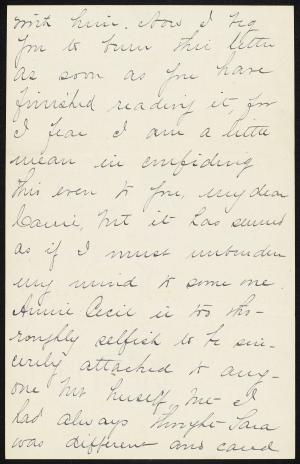 with him. Now I beg
you to burn this letter
as soon as you have
finished reading it, for
I fear I am a little
mean in confiding
this even to you, my dear
Carrie, but it has seemed
as if I must unburden
my mind to some one.
Annie Cecil is too tho-
roughly selfish to be sin-
cerely attached to any-
one but herself, but I
had always thought Sara
was different and cared